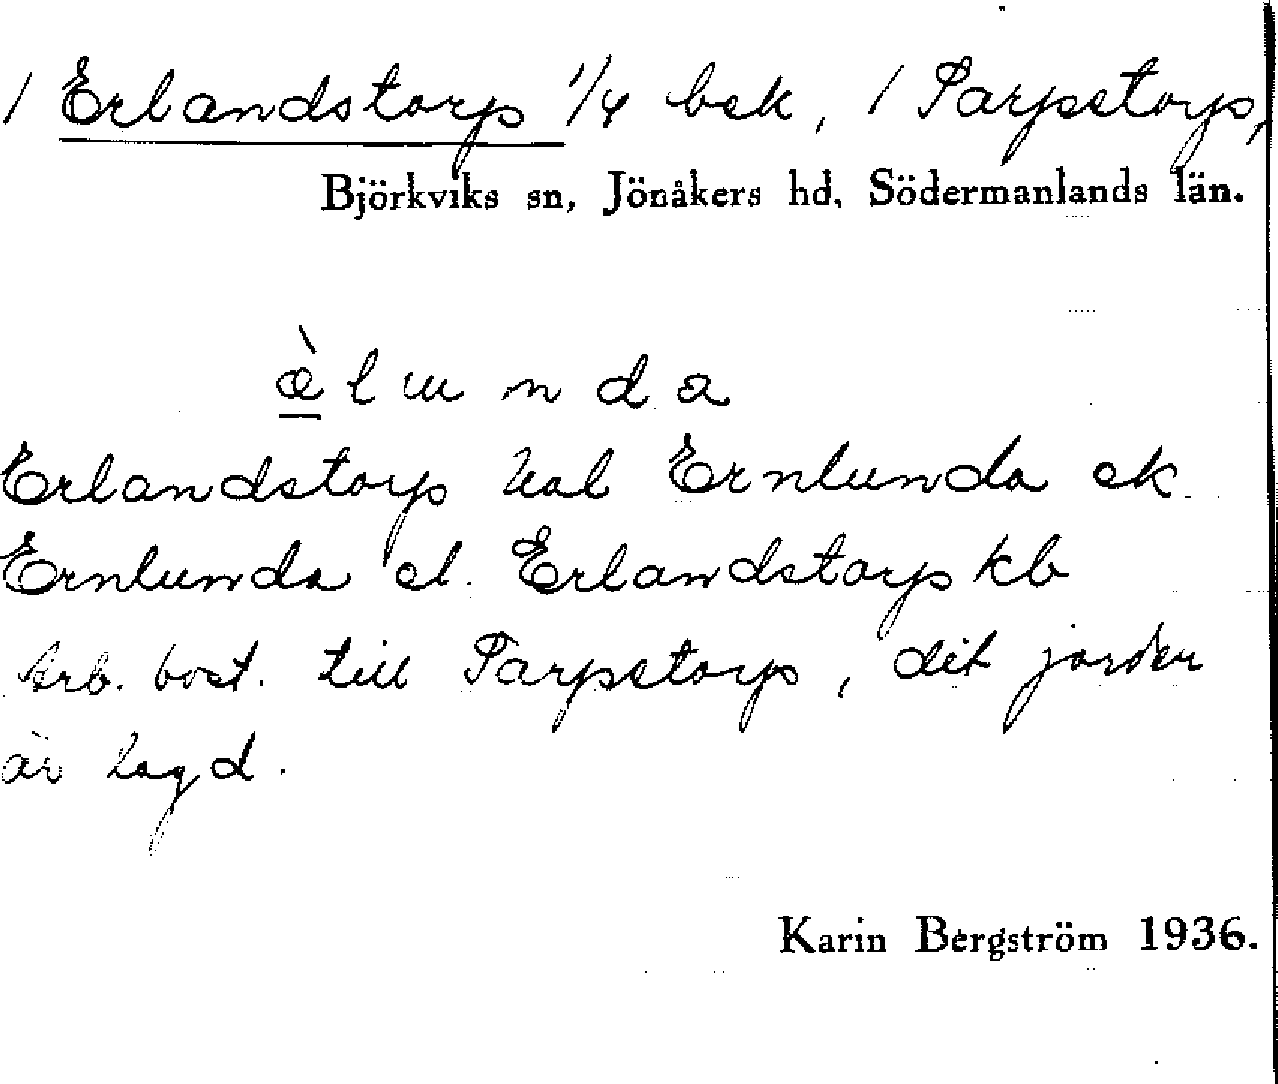 / Erlandstorp 1/4 bsk, / Tarpstorp,
Björkviks sn, Jönåkers hd, Södermanlands län.
æ̀lunda
Erlandstorp Ual Ernlunda ek
Ernlunda el. Erlandstorp kb
Arb. bost. till Tarpstorp, dit jorden
är lagd.
Karin Bergström 1936.